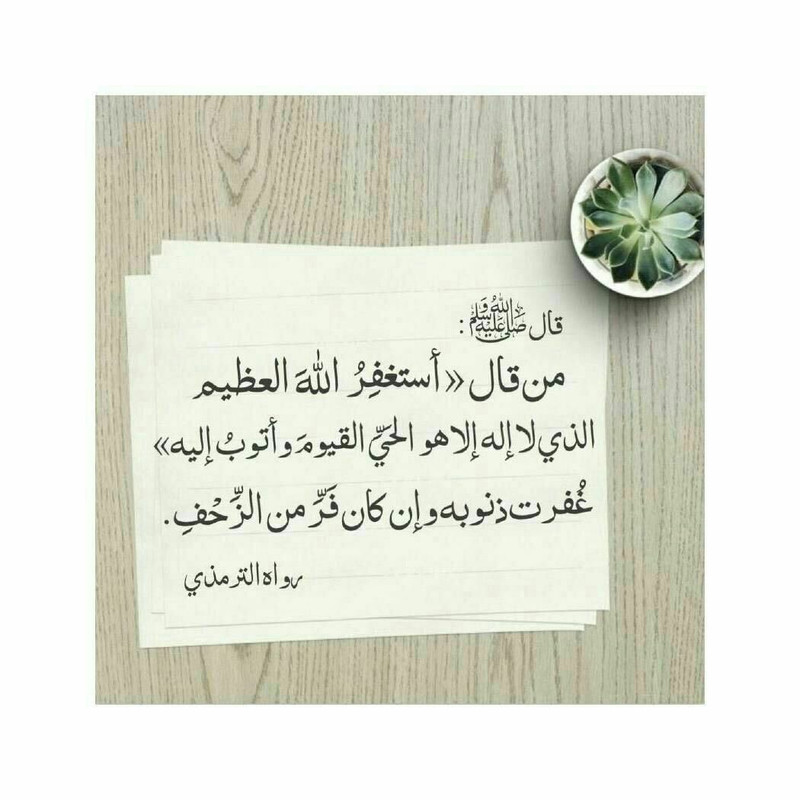 قال ﷺ :
من قال «أستغفِرُ اللهَ العظيم
الذي لا إله إلا هو الحيَّ القيومَ وأتوبُ إليه»
غُفرت ذنوبه وإن كان فَرَّ من الزَّحْفِ.
رواه الترمذي